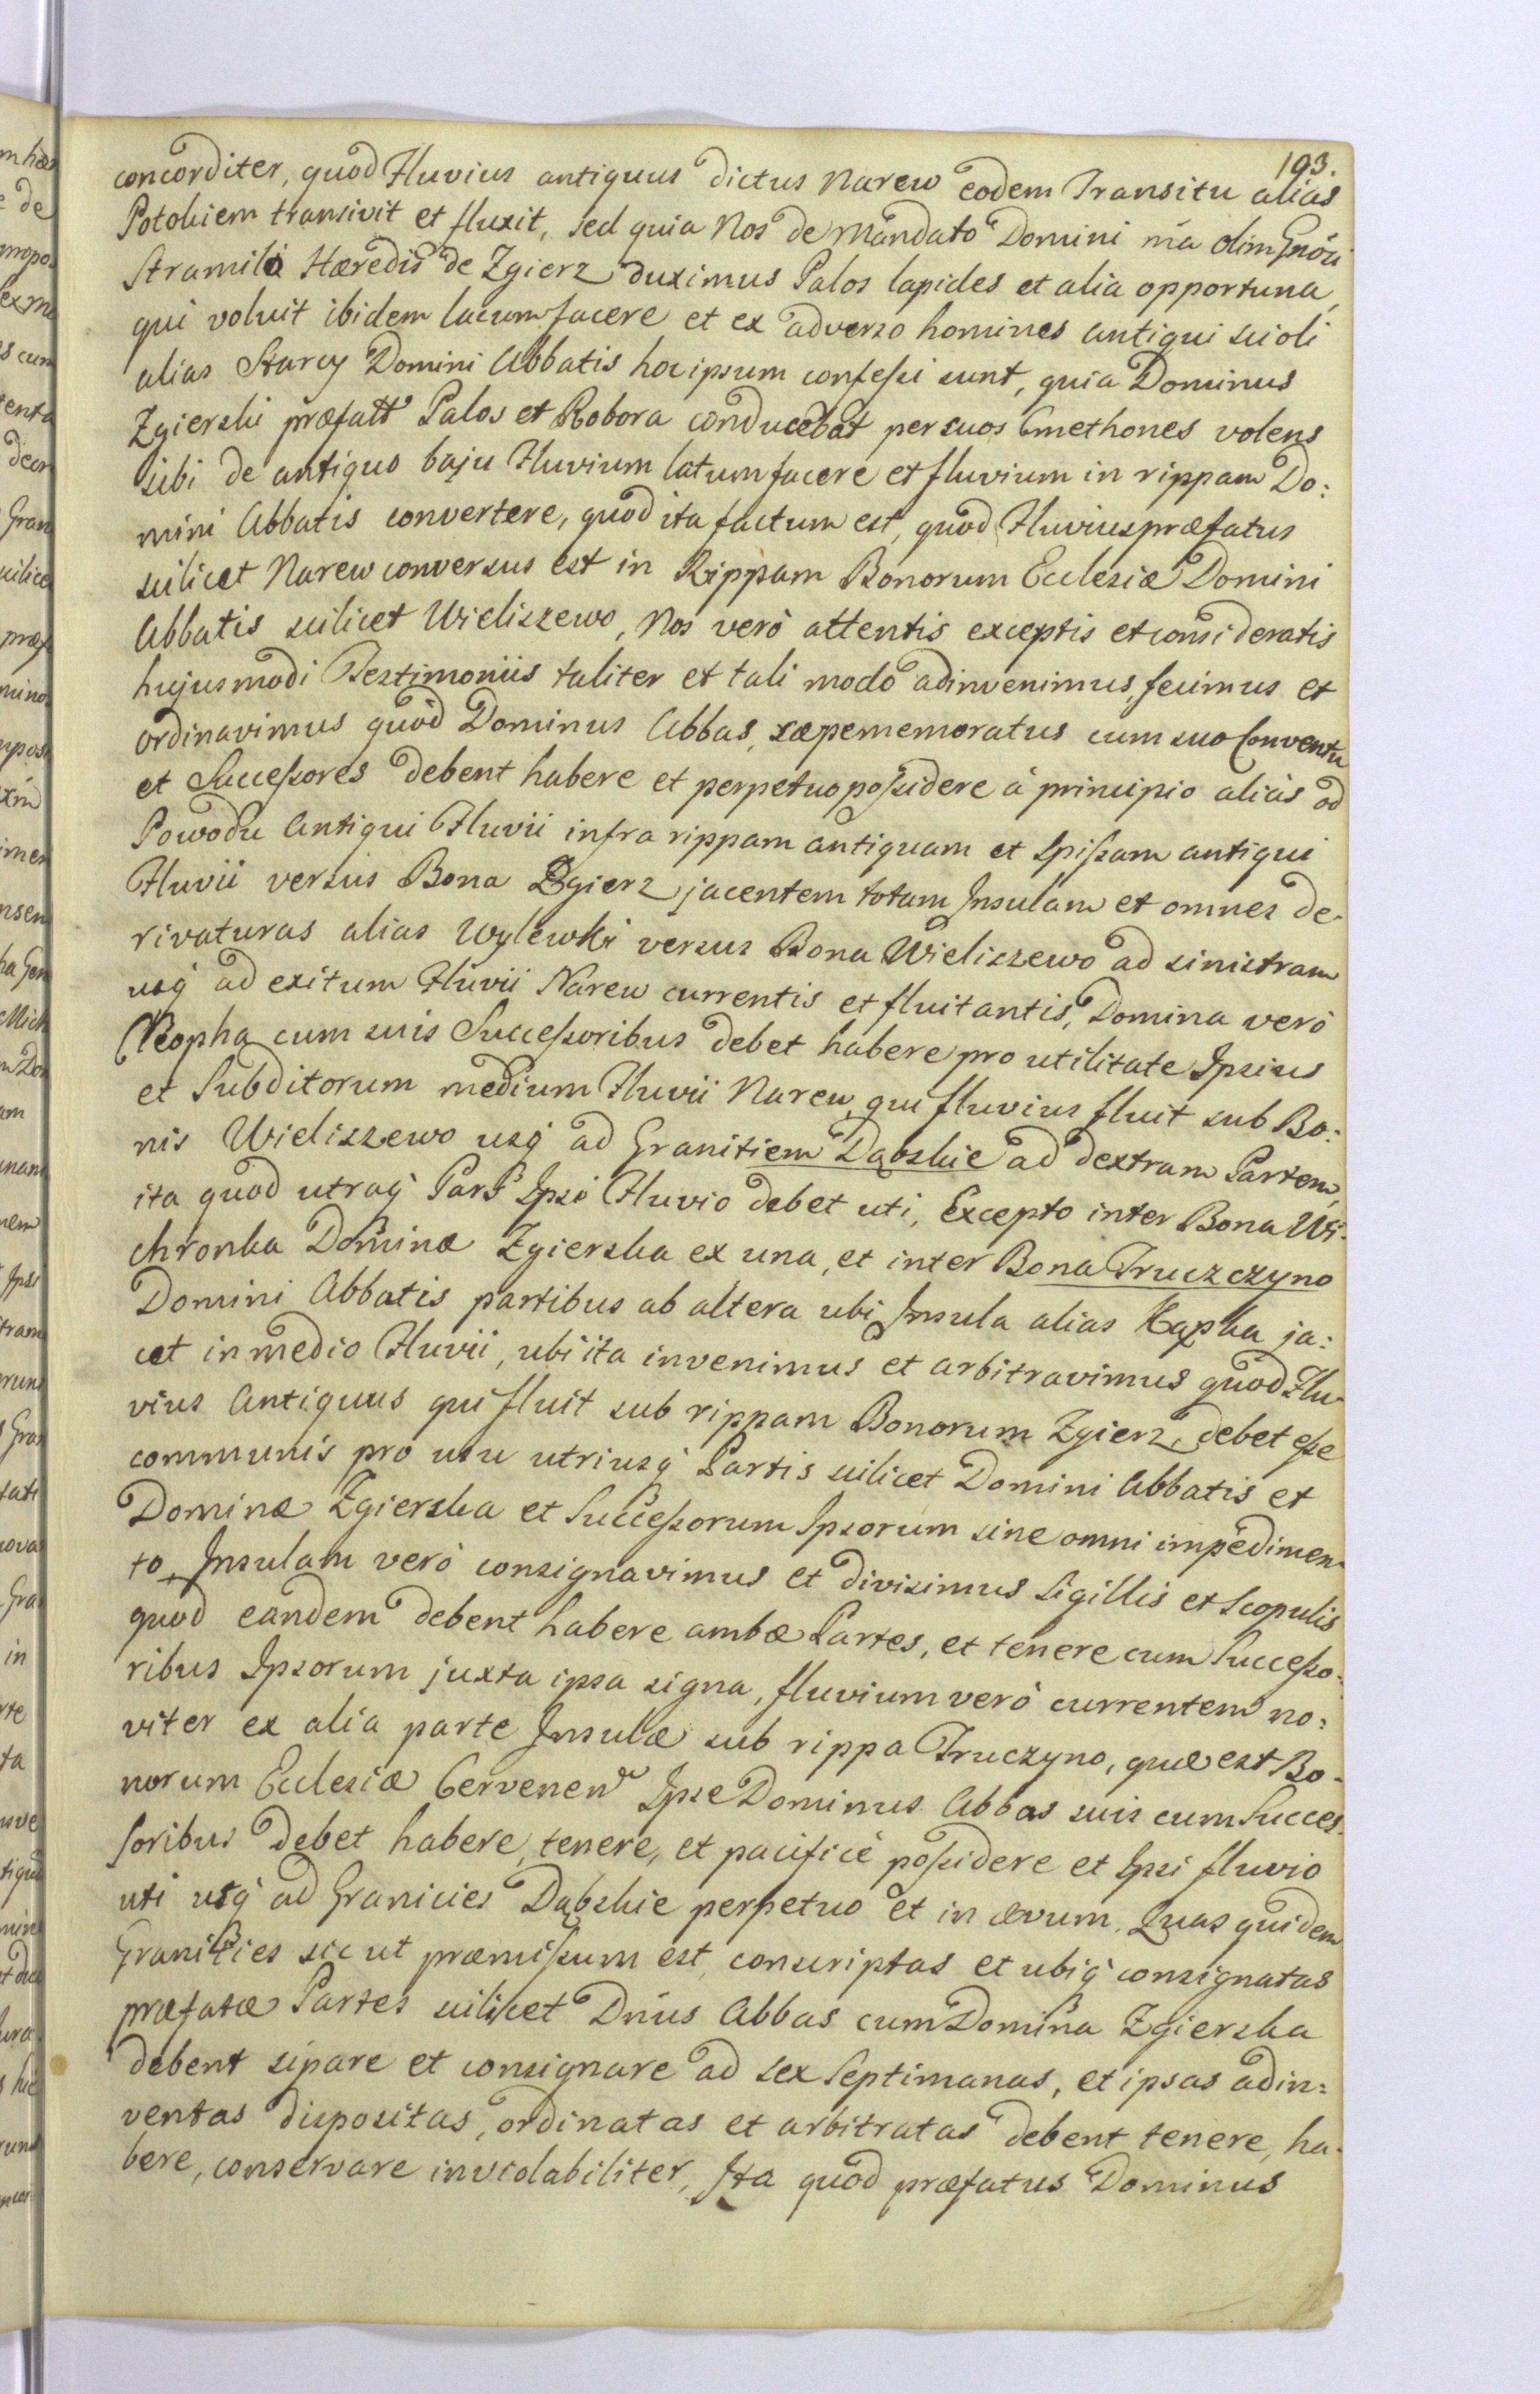 193.
concorditer, quod Fluvius antiquus dictus Narew eodem Transitu alias
Potokiem transivit et fluxit, sed quia Nos de Mandato Domini nr̄a olim Gnōsi
Stramilo Hæredis de Zgierz duximus Palos lapides et alia opportuna,
qui voluit ibidem lacum facere et ex adverso homines antiqui scioli
alias Starcy Domini Abbatis hoc ipsum confeſsi sunt, quia Dominus
Zgierski præfatt Palos et Robora conducebat per suos Cmethones volens
sibi de antiquo baju Fluvium latum facere et fluvium in rippam Do:
mini Abbatis convertere, quod ita factum est, quod Fluvius præfatus
scilicet Narew conversus est in Rippam Bonorum Ecclesiæ Domini
Abbatis scilicet Wieliszewo, Nos verò attentis exceptis et consideratis
hujusmodi Testimoniis taliter et tali modo adinvenimus, fecimus et
ordinavimus quod Dominus Abbas, sæpememoratus cum suo Conventu
et Succeſsores debent habere et perpetuo poſsidere à principio alias od
Powodu Antiqui Fluvii infra rippam antiquam et Spiſsam antiqui
Fluvii versus Bona Zgierz jacentem totam Insulam et omnes de-
rivaturas alias Wylewki versus Bona Wieliszewo ad sinistram
usq̨ ad exitum Fluvii Narew currentis et fluitantis, Domina verò
Cleopha cum suis Succeſsoribus debet habere pro utilitate Ipsius
et Subditorum medium Fluvii Narew, qui fluvius fluit sub Bo:
nis Wieliszewo usq̨ ad Granitiem Dąbskie ad dextram Partem,
ita quod utraq̨ Pars Ipso Fluvio debet uti, Excepto inter Bona Wi-
chronka Dominæ Zgierska ex una, et inter Bona Truszczyno
Domini Abbatis partibus ab altera ubi Insula alias Kąpka ja:
cet in medio Fluvii, ubi ita invenimus et arbitravimus quod Flu-
vius Antiquus qui fluit sub rippam Bonorum Zgierz, debet eſse
communis pro usu utriusq̨ Partis scilicet Domini Abbatis et
Dominæ Zgierska et Succeſsorum Ipsorum sine omni impedimen-
to, Insulam verò consignavimus et divisimus Sigillis et Scopulis
quod eandem debent habere ambæ Partes, et tenere cum Succeſso-
ribus Ipsorum juxta ipsa signa, fluvium verò currentem no:
viter ex alia parte Insulæ sub rippa Truczyno, quæ est Bo-
norum Ecclesiæ Cervenen Ipse Dominus Abbas suis cum Succes-
soribus debet habere, tenere, et pacificè poſsidere et Ipsi fluvio
uti usq̨ ad Granicies Dąbskie perpetuo et in ævum. Quas quidem
Granities sic ut præmiſsum est, conscriptas et ubiq̨ consignatas
præfatæ Partes scilicet Dn̄us Abbas cum Domina Zgierska
debent sipare et consignare ad sex Septimanas, et ipsas adin:
ventas dispositas, ordinatas et arbitratas debent tenere, ha-
bere, conservare inviolabiliter, Ita quod præfatus Dominus